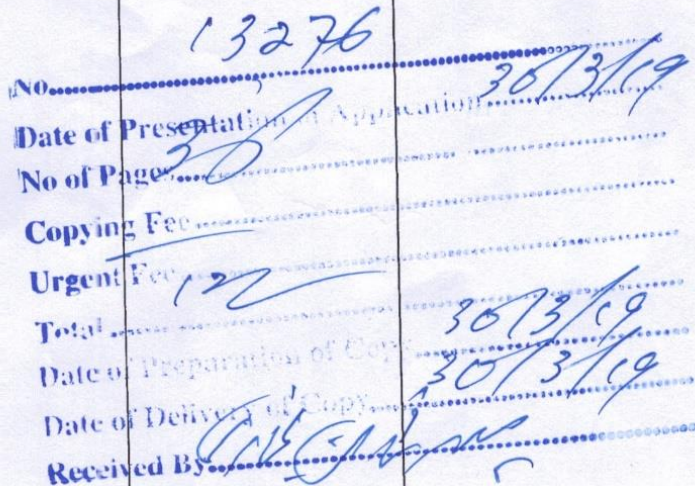 No. 13276
Date of Presentation of Application 30/3/19
No of Pages
Copying Fee
Urgent Fee
Total
Date of Preparation of Copy 30/3/19
Date of Delivery of Copy 30/3/19
Received By